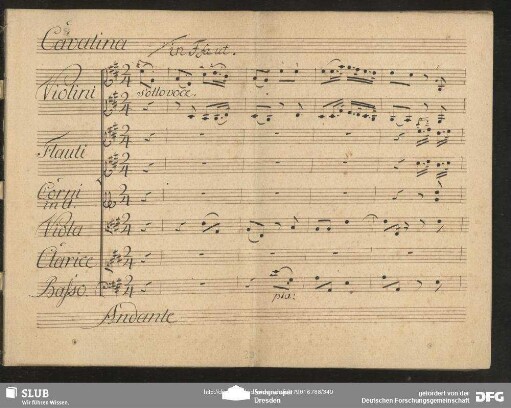 Cavatina
in F fa ut.
Violini
Sottovoce.
Flauti
Corni
in
Viola
Clarice
Basso
Andante
SLUB
Wir führen Wissen.
Dresden
gefördert von der
Deutschen Forschungsgemeinschaft
DFG